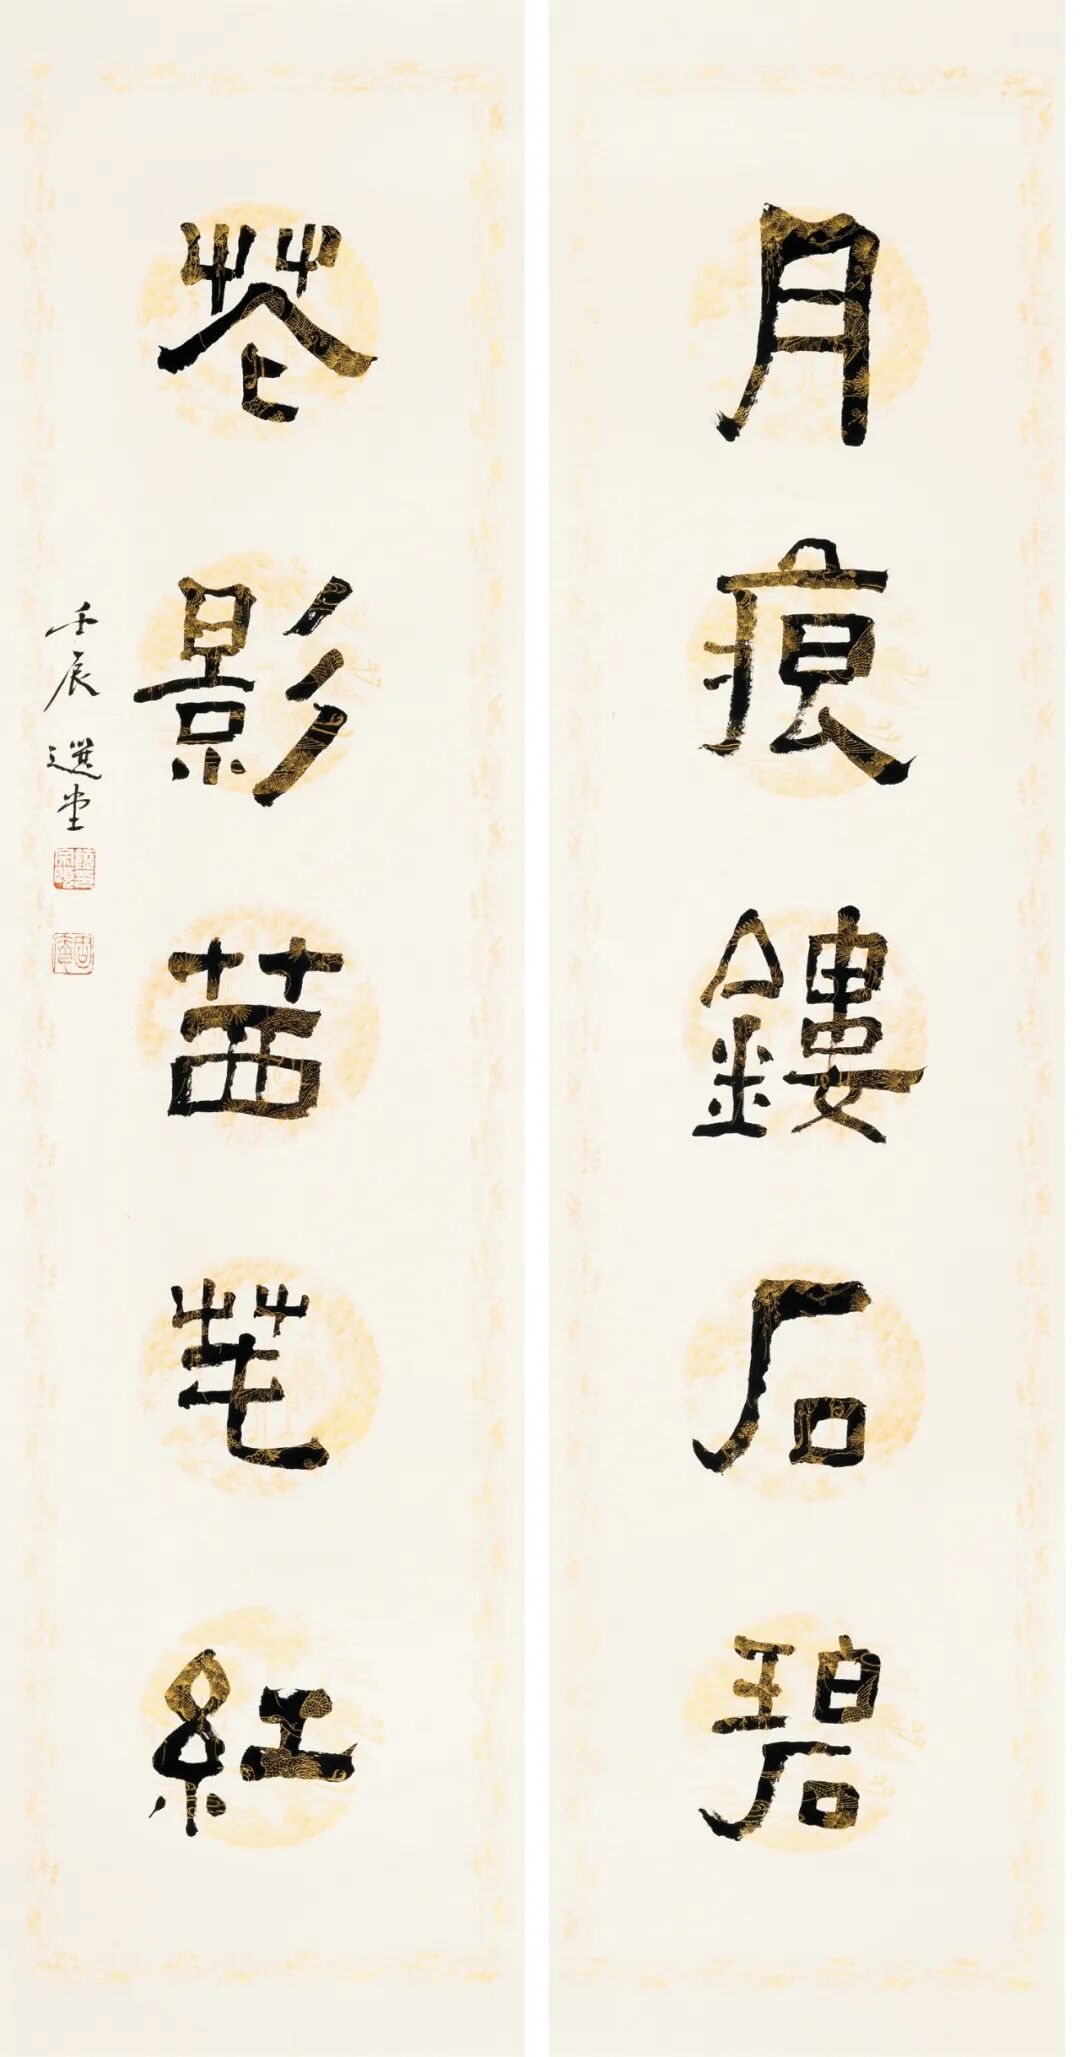 月痕鏤石碧
花影茜芼紅
壬辰 選堂